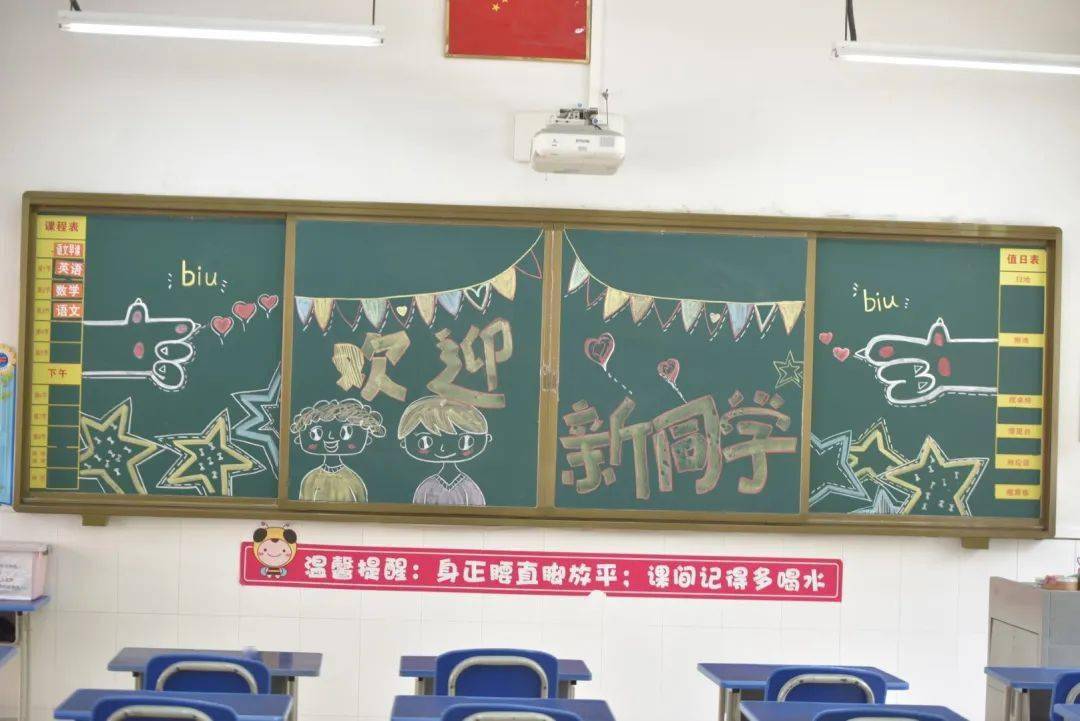 课程表
语文早读
英语
数学
语文
下午
biu
欢迎
新同学
biu
值日表
EPSON
温馨提醒：身正腰直脚放平；课间记得多喝水